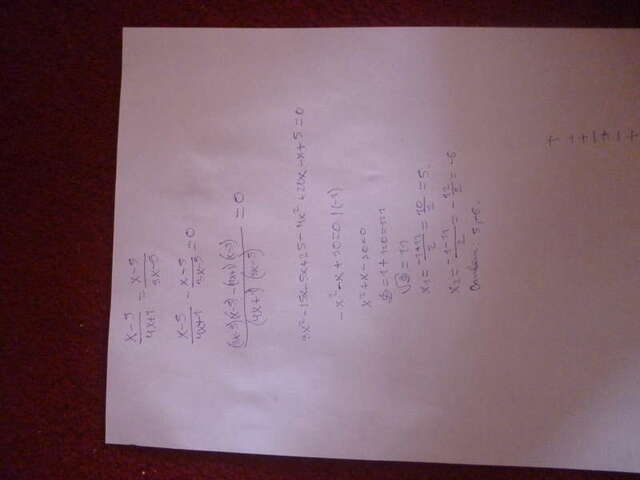 (x-5)/(4x+1) = (x-5)/(3x-5)
(x-5)/(4x+1) - (x-5)/(3x-5) = 0
((3x-5)(x-5)-(4x+1)(x-5))/((4x+1)(3x-5)) = 0
3x²-15x-5x+25-4x²+20x-x+5=0
-x²-x+30=0 |(-1)
x²+x-30=0
D=1+120=121
√D=11
x₁=(-1+11)/2=10/2=5.
x₂=(-1-11)/2=-12/2=-6
Ответ: 5;-6.